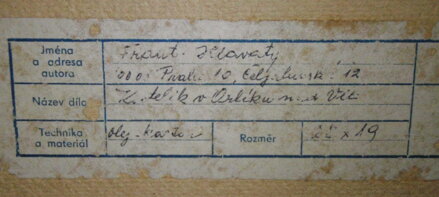 Jména
a adresa
autora
Frant. Hlavatý
Praha 10, 12
Název díla
v Orlíku
Technika
a materiál
olej. karton
Rozměr
x 19